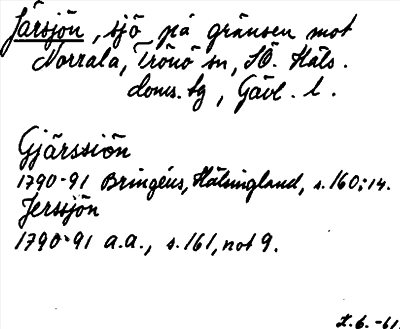 Järsjön, sjö på gränsen mot
Norrala, Trönö sn, SÖ. Häls.
doms.tg, Gävl. l.
Gjärssiön
1790-91 Bringéus, Hälsingland, s. 160; 14.
Jerssjön
1790-91 a.a., s. 161, not 9.
X. 6. -61.